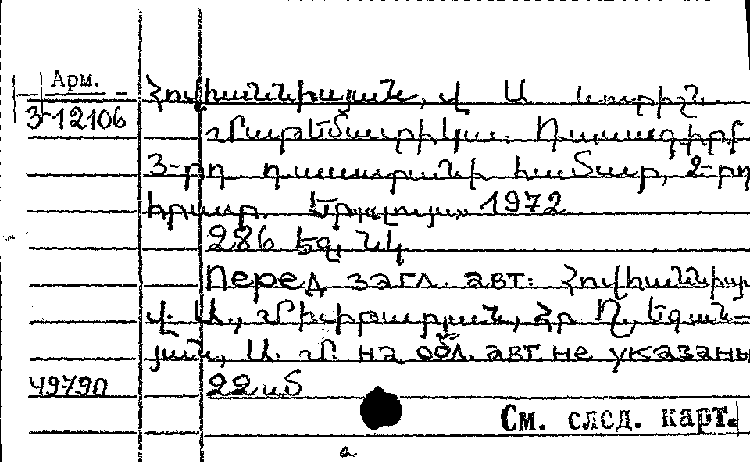 Арм.
Հովհաննիսյան, Վ. Ա. և ուրիշն.
3-12106
Մաթեմատիկա. Դասագիրք
3-րդ դասարանի համար, 2-րդ
հրատ. Երևան, Լույս, 1972
286 եզ. նկ
Перед загл. авт.: Հովհաննիսյ
Վ. Ա., Մխիթարյան, Հր. Ղ., Եգան-
յան, Ա. Մ. на обл. авт. не указаны
4979п
22 սմ
См. след. карт.
a